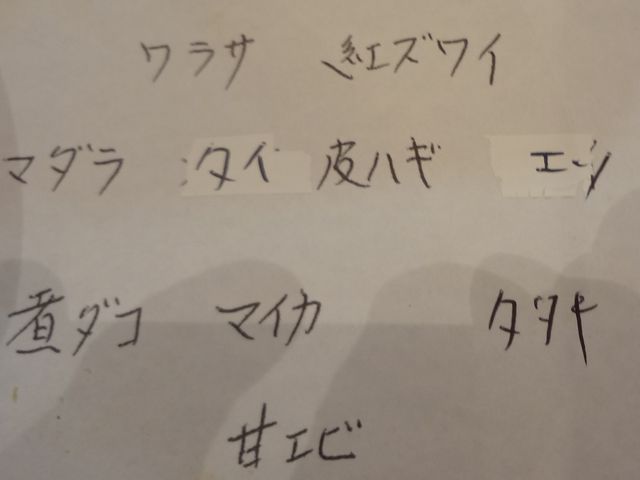 ワラサ 紅ズワイ
マダラ タイ 皮ハギ
煮ダコ マイカ タタキ
甘エビ